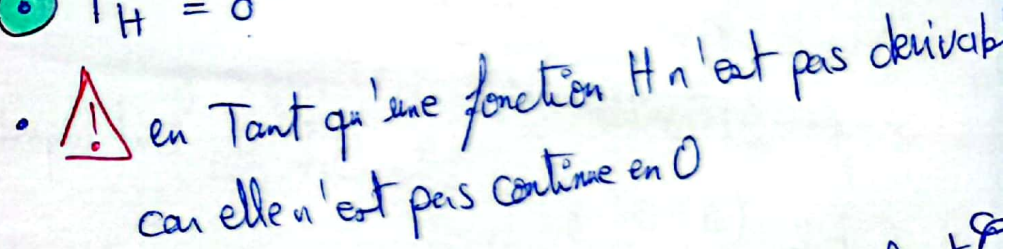 H = 0
• ! en Tant qu'une fonction H n'est pas derivab
car elle n'est pas continue en 0